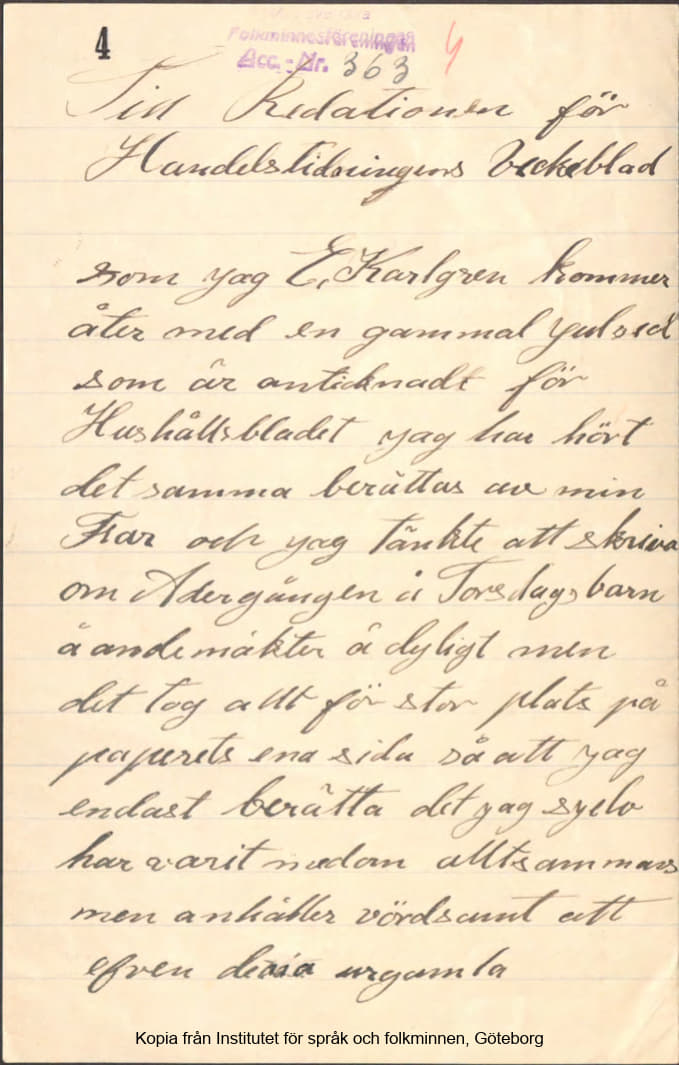 4
Folkminnesföreningen
Acc.-Nr. 363 4
Till Redationen för
Handelstidningens Veckoblad
som yag E, Karlgren kommer
åter med en gammal yulsed
som är anticknadt för
Hushållsbladet yag har hört
det samma berättas av min
Far och yag tänkte att skriva
om Adergången å Torsdagsbarn
å andemäkter å dyligt men
det tog allt för stor plats på
paperets ena sida så att yag
endast berätta det yag syelv
har varit med om alltsammans
men anhåller vördsamt att
efven dessa urgamla
Kopia från Institutet för språk och folkminnen, Göteborg